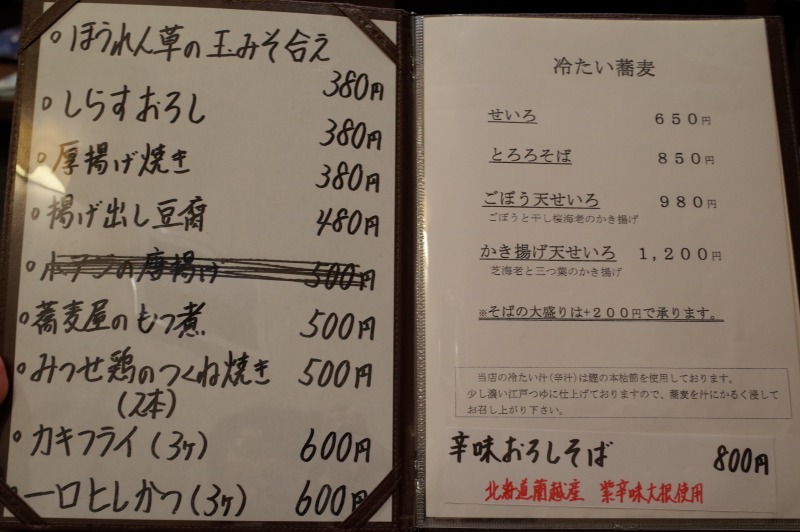 ◦ほうれん草の玉みそ合え
380円
◦しらすおろし
380円
◦厚揚げ焼き
380円
◦揚げ出し豆腐 480円
の唐揚げ 500円
◦蕎麦屋のもつ煮 500円
◦みつせ鶏のつくね焼き 500円
(2本)
◦カキフライ(3ヶ) 600円
◦一口ヒレかつ(3ヶ) 600円
冷たい蕎麦
せいろ 650円
とろろそば 850円
ごぼう天せいろ 980円
ごぼうと干し桜海老のかき揚げ
かき揚げ天せいろ 1,200円
芝海老と三つ葉のかき揚げ
※そばの大盛りは+200円で承ります。
当店の冷たい汁(辛汁)は鰹の本枯節を使用しております。
少し濃い江戸つゆに仕上げておりますので、蕎麦を汁にかるく浸して
お召し上がり下さい。
辛味おろしそば 800円
北海道蘭越産 紫辛味大根使用